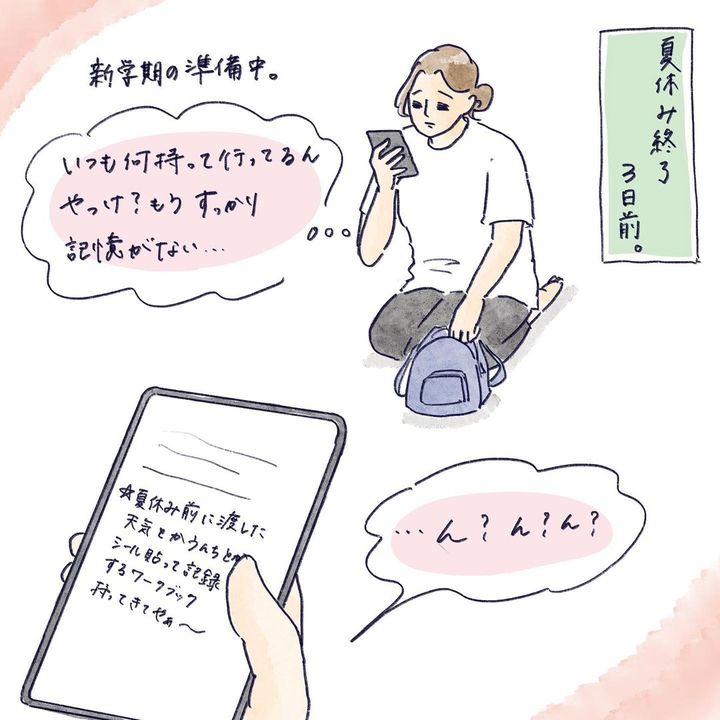 夏休み終了
3日前。
新学期の準備中。
いつも何持って行ってるん
やっけ?もうすっかり
記憶がない...
☆夏休み前に渡した
天気とかうんちとか
シール貼って記録
するワークブック
持ってきてやぁ〜
...ん?ん?ん?